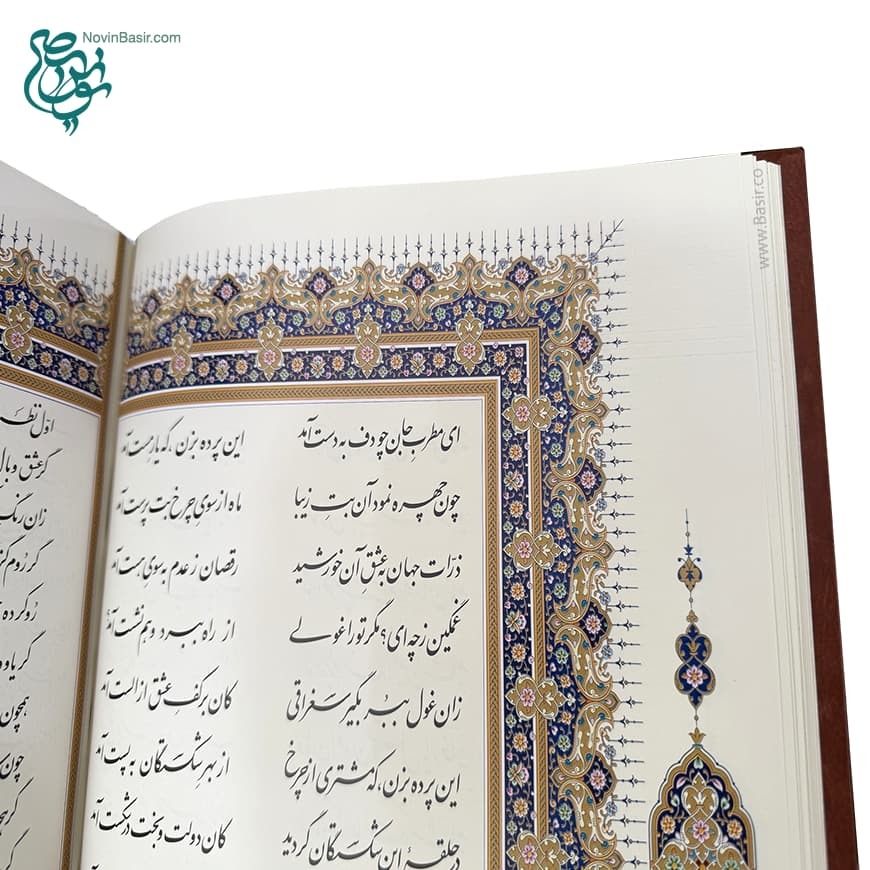 NovinBasir.com
www.Basir.co
ای مطربِ جان چو دف به دست آمد این پرده بزن، که یار مست آمد
چون چهره نمود آن بتِ زیبا ماه از سویِ چرخ بت پرست آمد
ذرّات جهان به عشقِ آن خورشید رقصان ز عدم به سوی هست آمد
غمگین ز چه ای؟ مگر تو را غولی از راه ببرد و هم نشت آمد
زان غول ببُر بگیر سغراقی کان بر کفِ عشق از الست آمد
این پرده بزن، که مشتری از چرخ از بهر شکستگان به پست آمد
در حلقهٔ این شکستگان گردید کان دولت و بخت در شکست آمد
اوّل نظر
گر عشق وبال
زان رنگ
گر رُوم گز
رُو کرده
گر یاو
همچون
چون